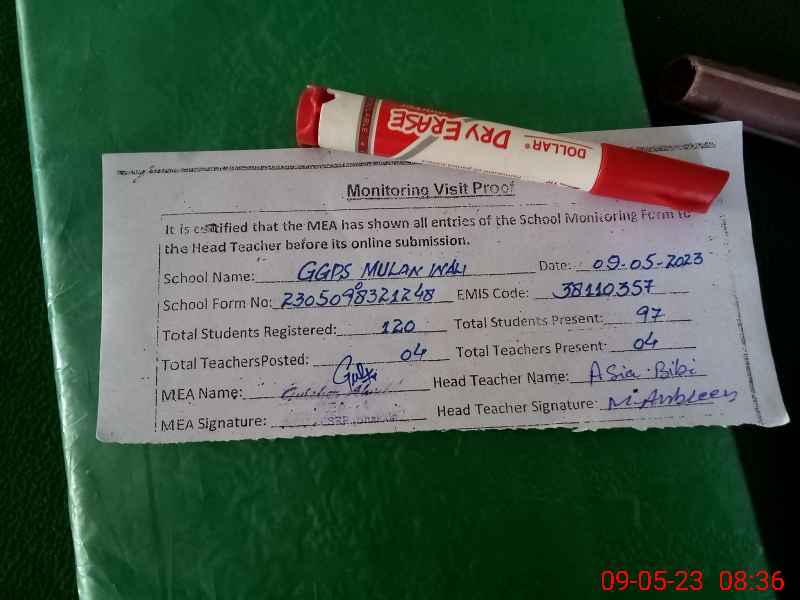 DOLLAR® DRY ERASE
Monitoring Visit Proof
It is certified that the MEA has shown all entries of the School Monitoring Form to
the Head Teacher before its online submission.
School Name: GGPS MULAN WALI Date: 09-05-2023
School Form No: 2305098321248 EMIS Code: 38110357
Total Students Registered: 120 Total Students Present: 97
Total TeachersPosted: 04 Total Teachers Present: 04
MEA Name: Head Teacher Name: Asia Bibi
MEA Signature: Head Teacher Signature:
09-05-23 08:36